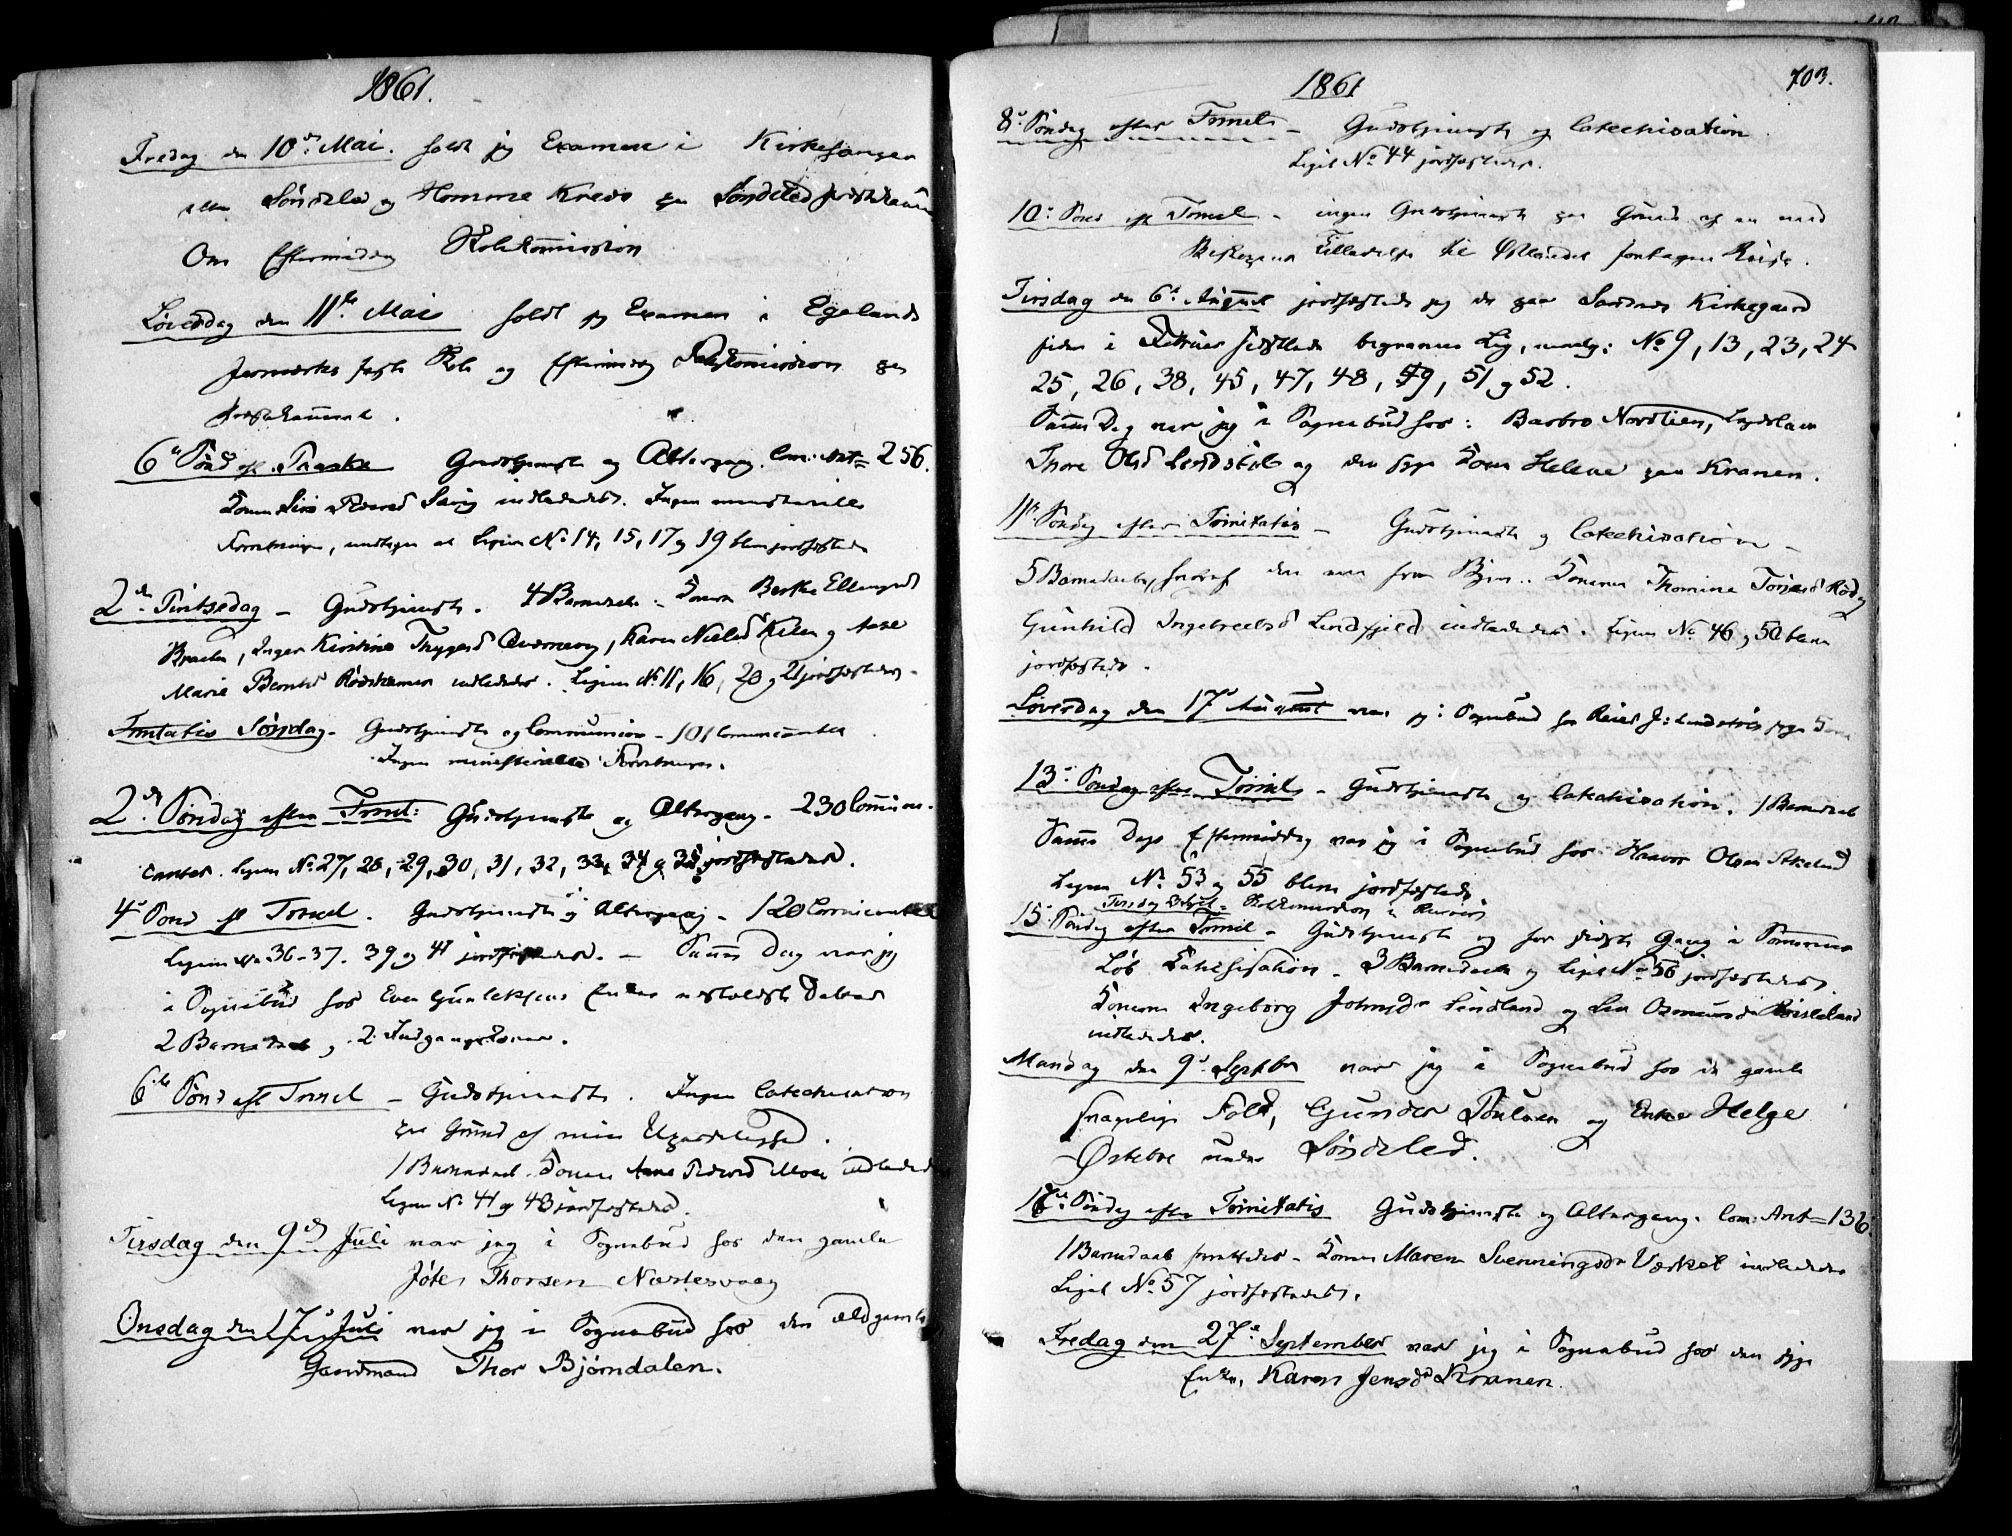 1861.
Fredag den 10de Mai. holdt jeg Examen i Kirkesanger
Søndeled og Homme Kreds paa Søndeled
Om Eftermiddag Skolekommission
Løverdag den 11te Mai holdt jeg Examen i Egelands
Jernværks faste Skole og Eftermiddag Skolekommission paa
6te Sønd. ef. Paaske Gudstjeneste og Altergang. Com: Ant= 256.
indledede. Ingen ministerielle
Forretninger, undtagen at Ligene No 14, 15, 17 og 19 blev jordfæstede
2den Pintsedag - Gudstjeneste. 4 Barnedaab: Konen Berthe
Inger Kirstine Thygesd Kverneng, Karen Nielsd Kilen og Anne
Marie Berntsd indledede. Ligene No 11, 16, 20 og 21 jordfæstedes.
Trinitatis Søndag. Gudstjeneste og Communion - 101 Communicanter
Ingen ministerielle Forretninger.
2den Søndag efter Trinit: Gudstjeneste og Altergang - 230 Communi-
canter. Ligene No 27, 28, 29, 30, 31, 32, 33, 34 og 35 jordfæstedes.
4de Sønd ef Trinit. Gudstjeneste og Altergang - 120 Communicanter
Ligene No 36-37. 39 og 41 jordfæstedes. - Samme Dag var jeg
i Sognebud hos Even Gunleksens Enke
2 Barnedaab og 2 Indgangskoner.
6te Sønd eft Trinit - Gudstjeneste. Ingen Catechisation
paa Grund af min Upasselighed.
1 Barnedaab. Konen Anne Moen indledede
Ligene No 41 og 43 jordfæstedes.
Tirsdag den 9de Juli var jeg i Sognebud hos den gamle
Thorsen Nærtesvaag
Onsdag den 17de Juli var jeg i Sognebud hos den ældgamle
Gaardmand Thor Bjørndalen.
1861 703.
8de Søndag efter Trinit - Gudstjeneste og Catechisation.
Liget No 44 jordfæstedes.
10de Sønd eft Trinit - ingen Gudstjeneste paa Grund af en med
Biskopens Tilladelse til Østlandet foretagen Reise.
Tirsdag den 6te August jordfæstede jeg de paa Sandnes Kirkegaard
siden i Februar sidstleden begravne Lig, nemlig: No 9, 13, 23, 24
25, 26, 38, 45, 47, 48, 49, 51 og 52.
Samme Dag var jeg i Sognebud hos: Barbro Nordlien,
Thore Olsd og den syge Kone Helene paa Kranen.
11te Søndag efter Trinitatis - Gudstjeneste og Catechisation -
5 Barnedaab, hvoraf den ene fra Byen. Konerne Thomine
Gunhild Ingebretsd Lindfjeld indledede. Ligene No 46 og 50 bleve
jordfæstede.
Løverdag den 17de August var jeg i Sognebud hos syge Kone
13de Søndag efter Trinit - Gudstjeneste og Catechisation. 1 Barnedaab
Samme Dags Eftermiddag var jeg i Sognebud hos Haavor Olsen
Ligene No 53 og 55 bleve jordfæstede
15de Søndag efter Trinit - Gudstjeneste og for sidste Gang i Sommerens
Løb Katekisation. 3 Barnedaab og Liget No 56 jordfæstedes.
Konerne Ingeborg Johnsdr Lindland og Lea Osmundsdr
indledede.
Mandag den 9de Septbr var jeg i Sognebud hos de gamle
svagelige Folk, Gunder Poulsen og Enke Helge
Østebøe under Søndeled.
17de Søndag efter Trinitatis Gudstjeneste og Altergang. Com: Ant= 136.
1 Barnedaab forrettedes. Konen Maren Svenningsdr Værket indledede
Liget No 57 jordfæstedes.
Fredag den 27de September var jeg i Sognebud hos den syge
Enke, Karen Jensdr Kranen.